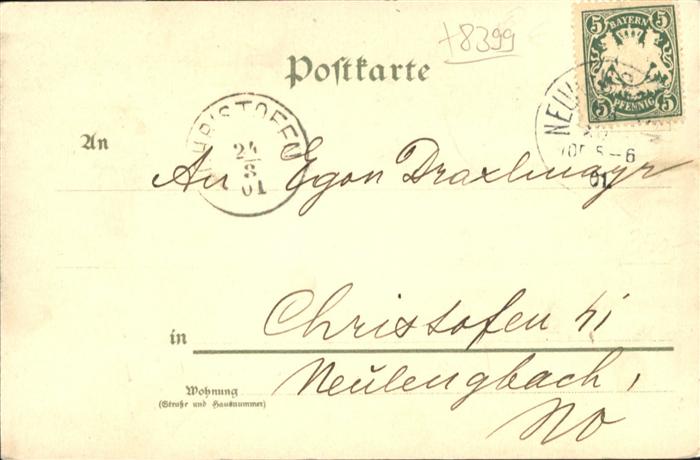 +8399
5 BAYERN 5
5 PFENNIG 5
Postkarte
CHRISTOFEN
24
8
01
5-6
01
An
An Egon Draxlmayr
in
Christofen
Neulengbach,
NO
Wohnung
(Straße und Hausnummer)